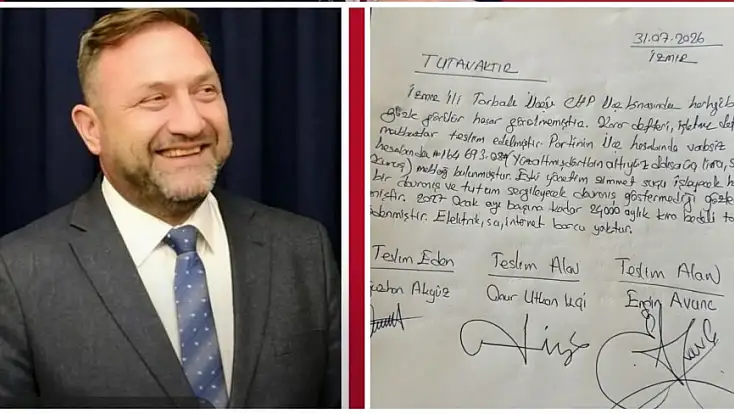 31.07.2026
İZMİR
TUTANAKTIR
İzmir İli Torbalı İlçesi CHP İlçe binasında herhgib
gözle görülür hasar görülmemiştir. Karar defteri, işletme def
makbuzlar teslim edilmiştir. Partinin İlçe hesabında vadsiz
hesabında 164 693.0 (Yüzaltmışdörtbin altıyüz doksan üç lira, s
kuruş) meblağ bulunmuştur. Eski yönetim zimmet suçu işleyecek h
bir davranış ve tutum sergileyecek davranış göstermediği gözle
miştir. 2027 Ocak ayı başına kadar 24000 aylık kira bedeli
ödenmiştir. Elektrik, su, internet borcu yoktur.
Teslim Eden Teslim Alan Teslim Alan
Akgüz Onur Utkan Engin Avunc